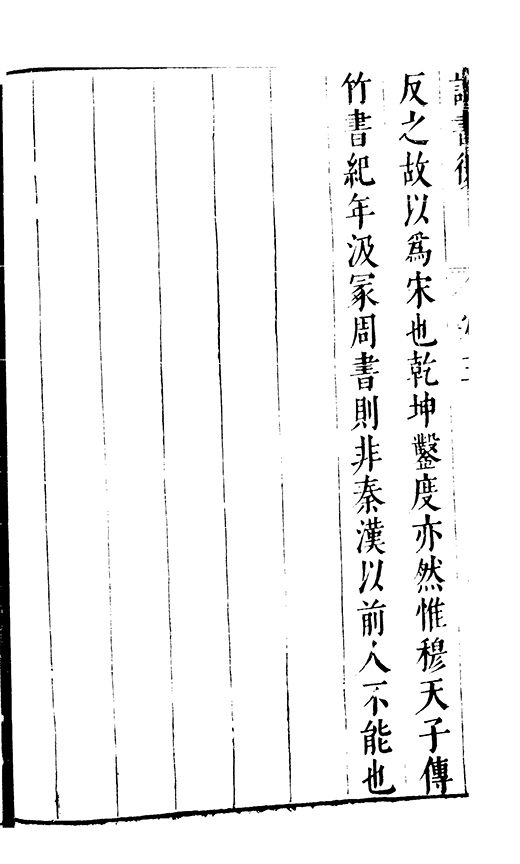 讀書後
反之故以爲宋也乾坤鑿度亦然惟穆天子傳
竹書紀年汲冢周書則非秦漢以前人不能也